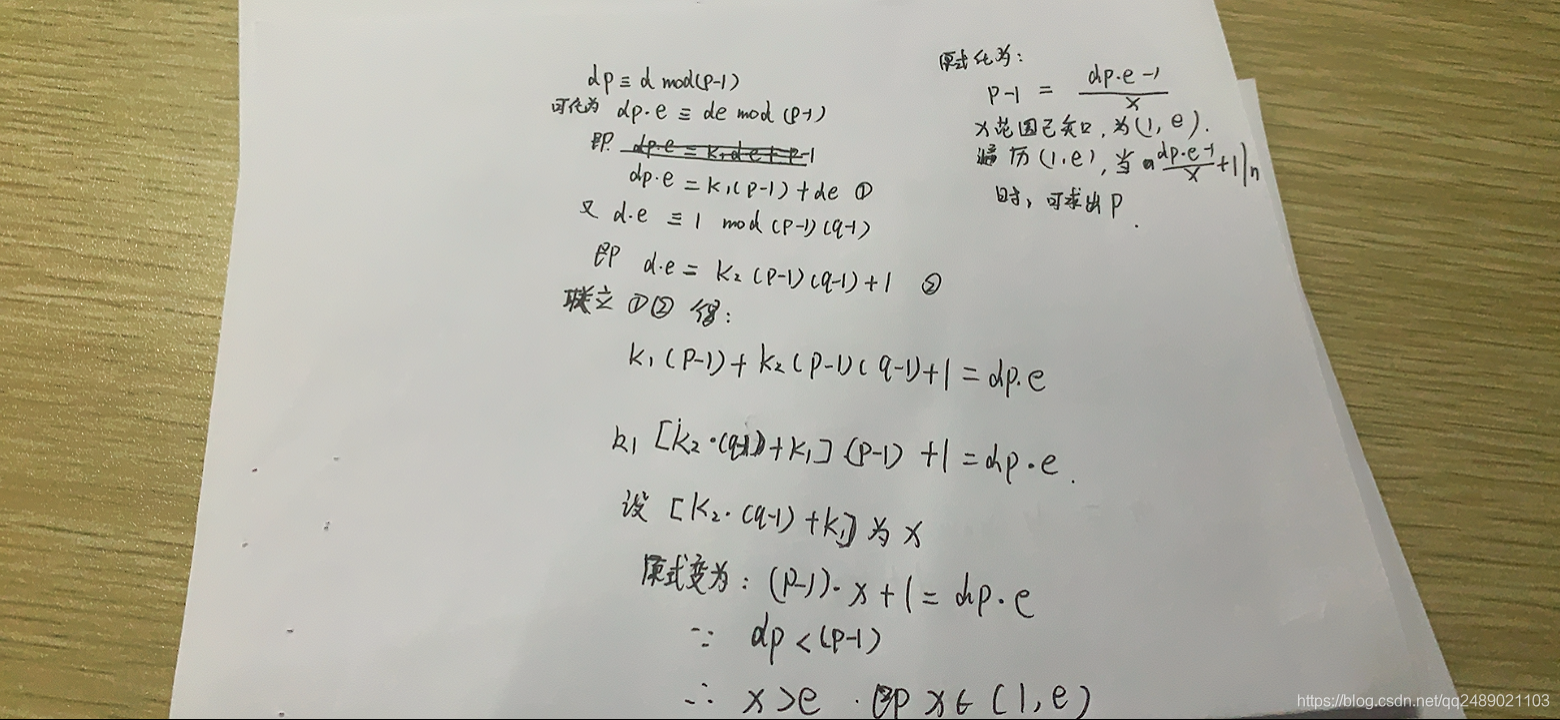 dp ≡ d mod(p-1)
可化为 dp·e ≡ de mod (p-1)
即 dp·e = k₁de+p-1
dp·e = k₁(p-1)+de ①
又 d·e ≡ 1 mod (p-1)(q-1)
即 d·e = k₂(p-1)(q-1)+1 ②
联立 ①② 得:
k₁(p-1)+k₂(p-1)(q-1)+1=dp·e
k₁ [k₂·(q-1)+k₁](p-1)+1=dp·e.
设 [k₂·(q-1)+k₁] 为 x
原式变为: (p-1)·x+1=dp·e
∵ dp<(p-1)
∴ x>e . 即 x∈(1,e)
原式化为:
p-1 = \frac{dp·e-1}{x}
x范围已知, 为(1,e).
遍历(1,e), 当 \frac{dp·e-1}{x}+1|n
时, 可求出p.
https://blog.csdn.net/qq2489021103